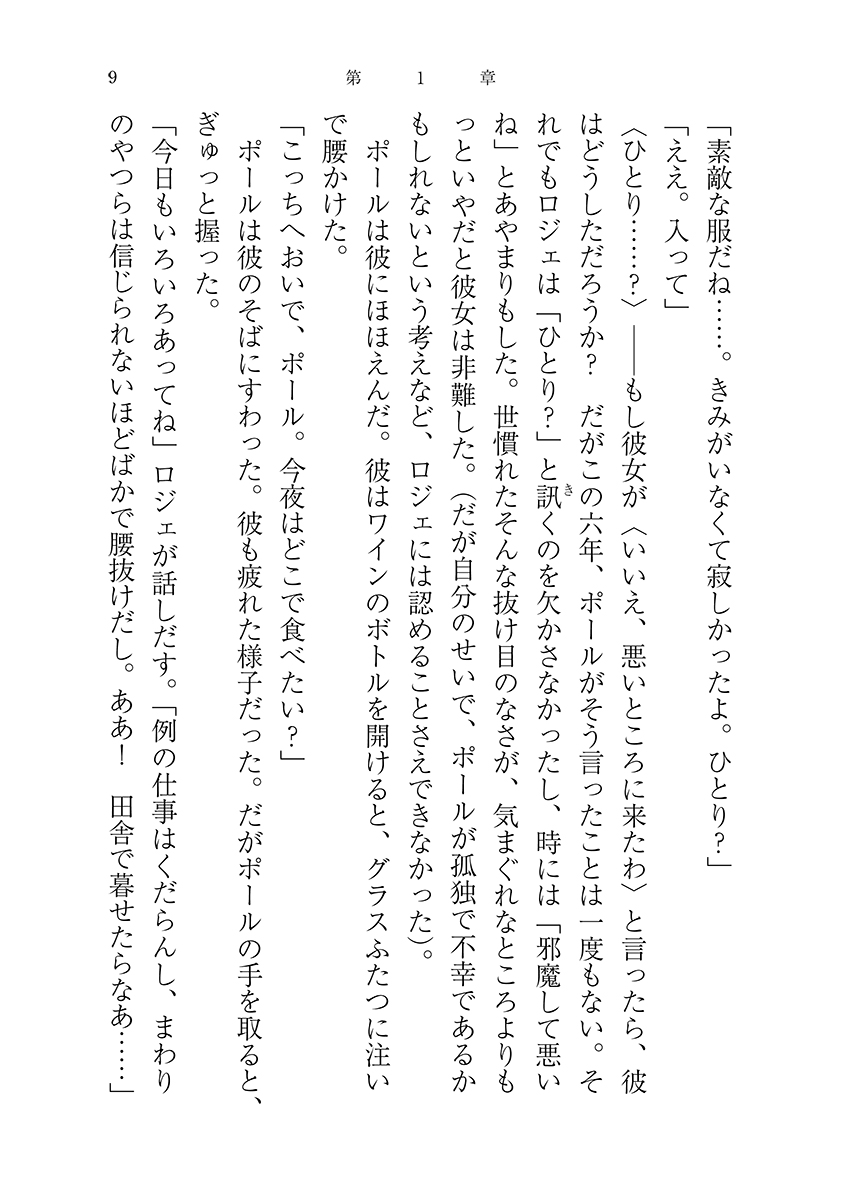 9
第1章
「素敵な服だね……。きみがいなくて寂しかったよ。ひとり？」
「ええ。入って」
〈ひとり……？〉――もし彼女が〈いいえ、悪いところに来たわ〉と言ったら、彼
はどうしただろうか？　だがこの六年、ポールがそう言ったことは一度もない。そ
れでもロジェは「ひとり？」と訊くのを欠かさなかったし、時には「邪魔して悪い
き
ね」とあやまりもした。世慣れたそんな抜け目のなさが、気まぐれなところよりも
っといやだと彼女は非難した。（だが自分のせいで、ポールが孤独で不幸であるか
もしれないという考えなど、ロジェには認めることさえできなかった）。
　ポールは彼にほほえんだ。彼はワインのボトルを開けると、グラスふたつに注い
で腰かけた。
「こっちへおいで、ポール。今夜はどこで食べたい？」
　ポールは彼のそばにすわった。彼も疲れた様子だった。だがポールの手を取ると、
ぎゅっと握った。
「今日もいろいろあってね」ロジェが話しだす。「例の仕事はくだらんし、まわり
のやつらは信じられないほどばかで腰抜けだし。ああ！　田舎で暮せたらなあ……」